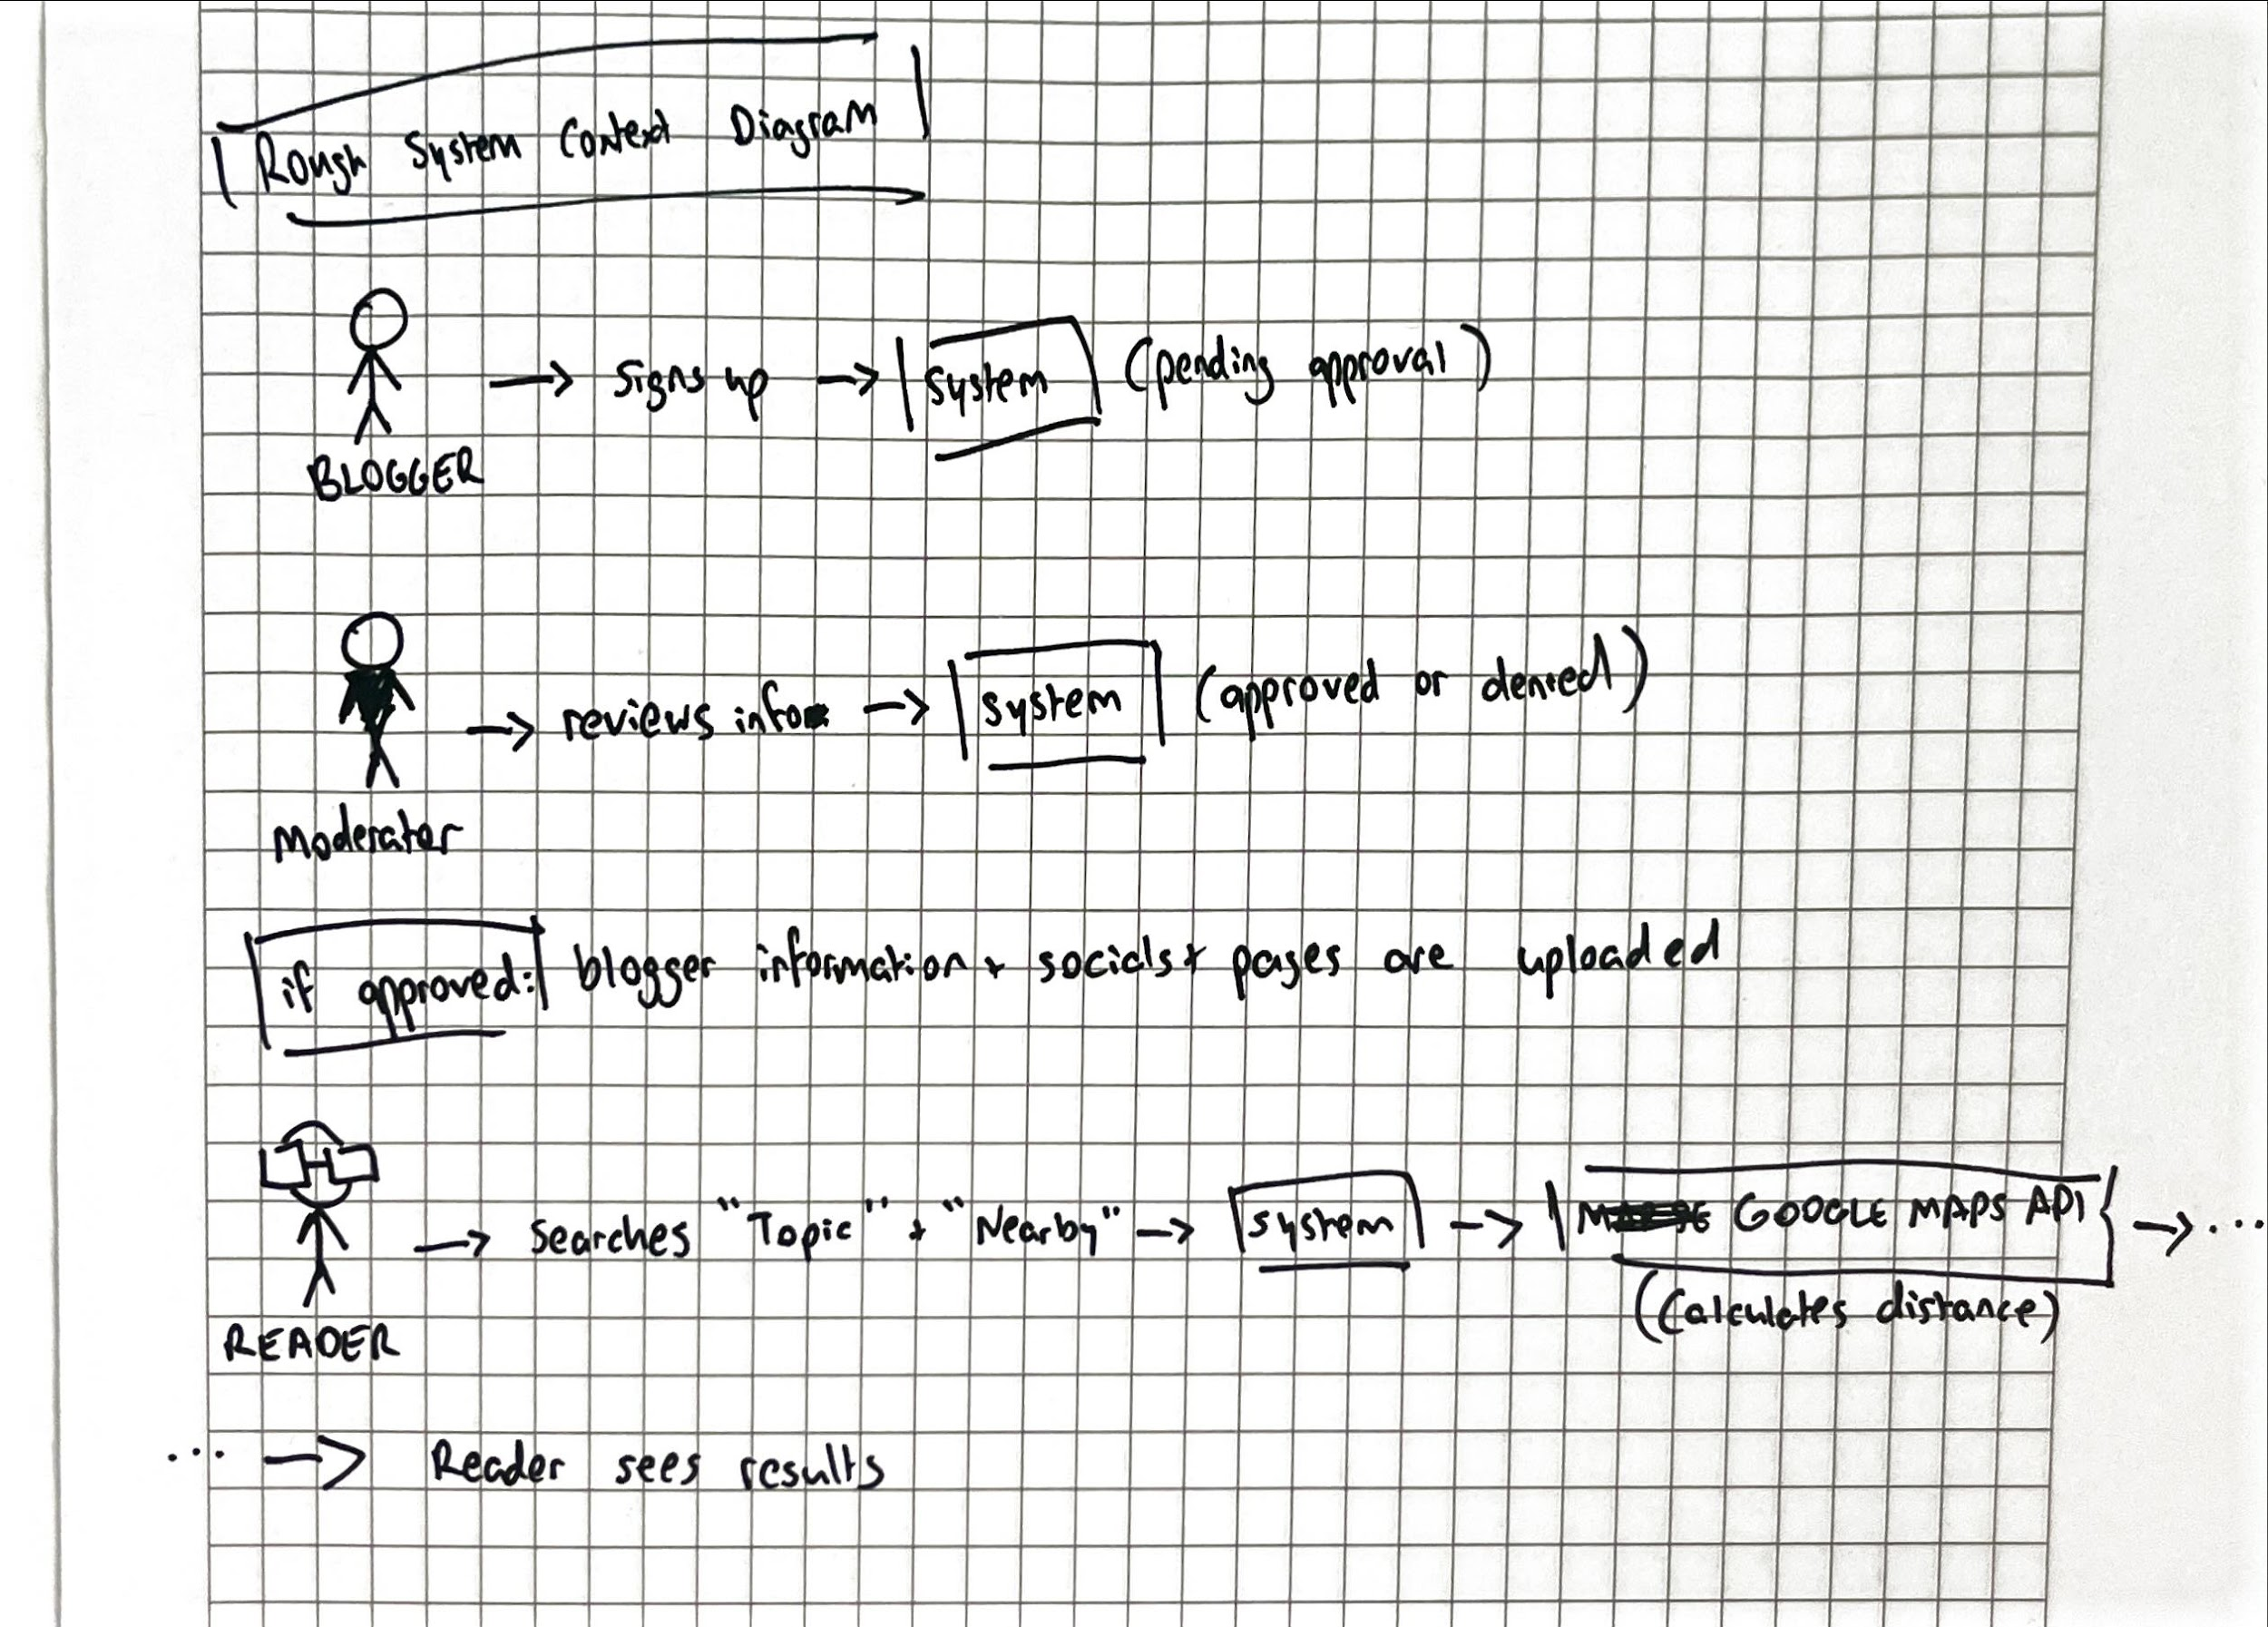 Rough System Context Diagram
→ signs up → system (pending approval)
BLOGGER
→ reviews info → system (approved or denied)
Moderator
if approved: blogger information + socials + pages are uploaded
→ searches "Topic" + "Nearby" → system → GOOGLE MAPS API → ...
(Calculates distance)
READER
... → Reader sees results